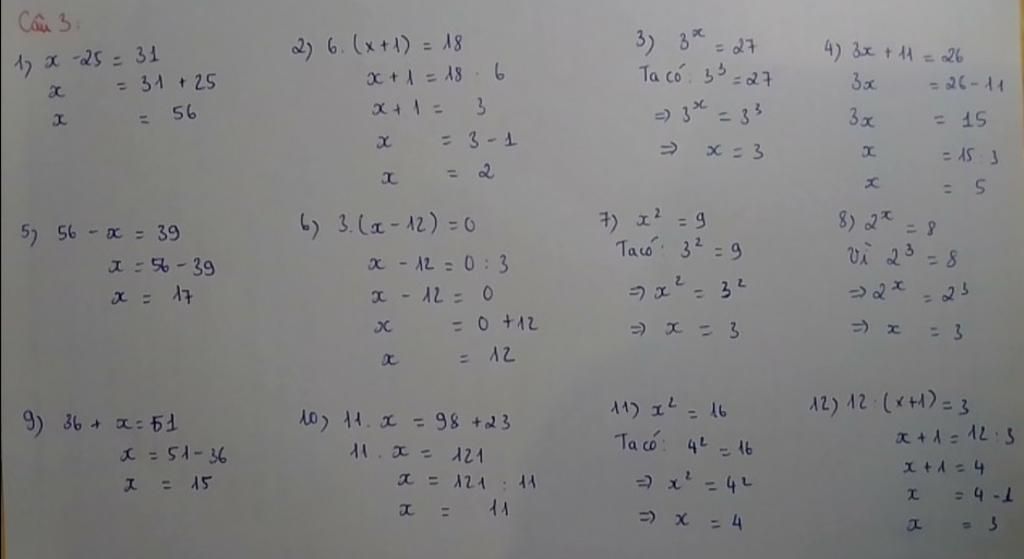 Câu 3:
1) x - 25 = 31
x = 31 + 25
x = 56
2) 6. (x+1) = 18
x + 1 = 18 : 6
x + 1 = 3
x = 3 - 1
x = 2
3) 3^x = 27
Ta có: 3^3 = 27
=> 3^x = 3^3
=> x = 3
4) 3x + 11 = 26
3x = 26 - 11
3x = 15
x = 15 : 3
x = 5
5) 56 - x = 39
x = 56 - 39
x = 17
6) 3. (x - 12) = 0
x - 12 = 0 : 3
x - 12 = 0
x = 0 + 12
x = 12
7) x^2 = 9
Ta có: 3^2 = 9
=> x^2 = 3^2
=> x = 3
8) 2^x = 8
Vì 2^3 = 8
=> 2^x = 2^3
=> x = 3
9) 36 + x = 51
x = 51 - 36
x = 15
10) 11. x = 98 + 23
11. x = 121
x = 121 : 11
x = 11
11) x^2 = 16
Ta có: 4^2 = 16
=> x^2 = 4^2
=> x = 4
12) 12 . (x+1) = 3
x + 1 = 12 : 3
x + 1 = 4
x = 4 - 1
x = 3